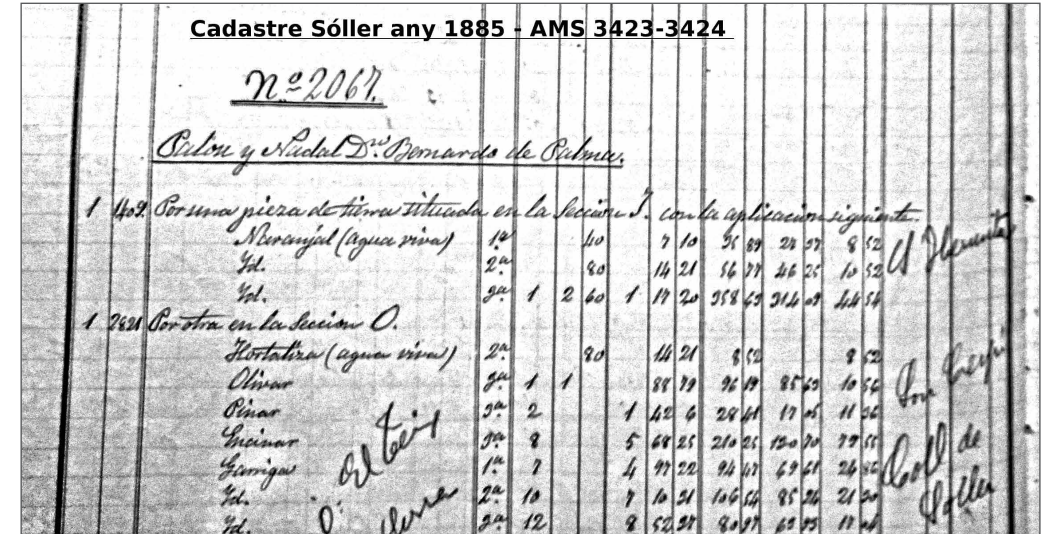 Cadastre Sóller any 1885 - AMS 3423-3424
N.º 2067.
y Nadal D.n Bernardo de Palma.
1 1409. Por una pieza de tierra situada en la Sección J. con la aplicación siguiente.
Naranjal (agua viva) 1ª 40 7 10 35 89 27 37 8 52
Id. 2ª 80 14 21 56 77 46 25 10 52
Id. 3ª 1 2 60 1 17 20 358 63 314 09 44 54
1 2821 Por otra en la Sección O.
Hortaliza (agua viva) 2ª 80 14 21 8 52 8 52
Olivar 3ª 1 1 88 79 96 19 85 63 10 56
Pinar 3ª 2 1 42 6 28 41 17 05 11 36
Encinar 3ª 8 5 68 25 210 25 130 70 79 55
Garriga 1ª 7 4 97 22 94 47 69 61 24 86
Id. 2ª 10 7 10 31 106 54 85 24 21 30
Id. 3ª 12 8 52 37 80 97 63 93 17 04
Son
Coll de
Soller